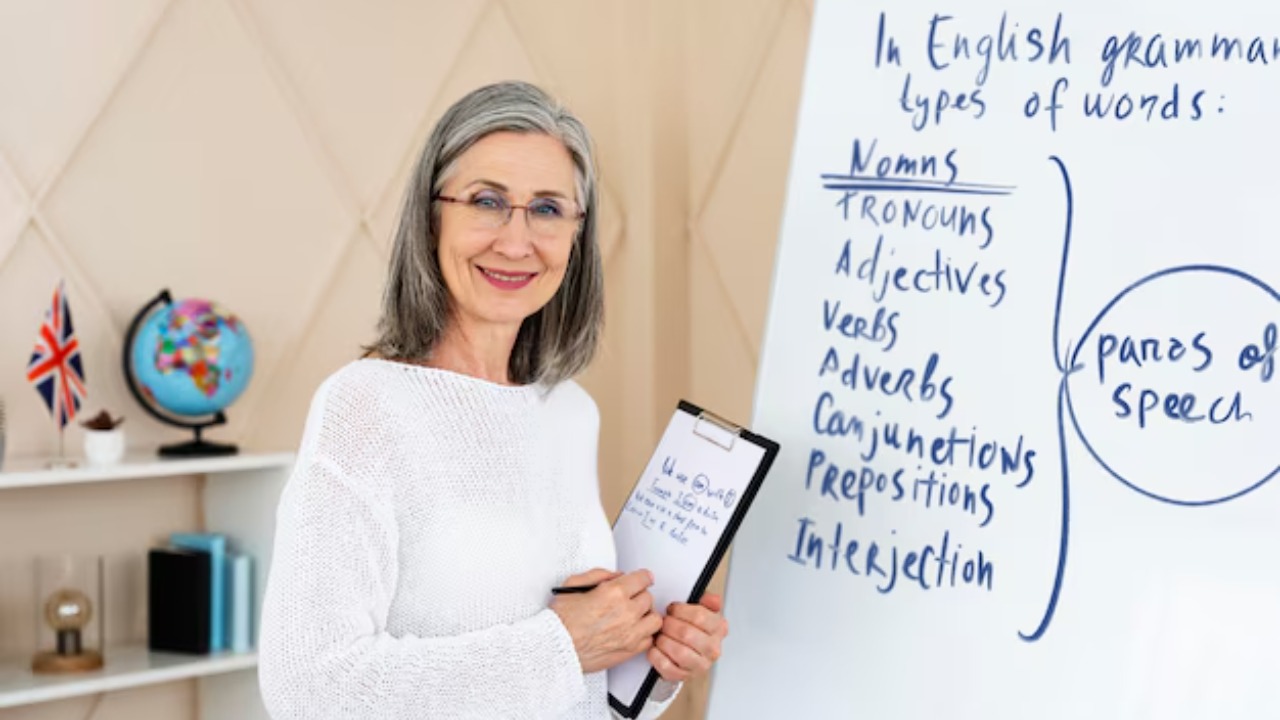 In English grammar
types of words:
Nomns
PRONOUNS
Adjectives
Verbs
Adverbs
Canjunctions
Prepositions
Interjection
parts of
speech
We use with